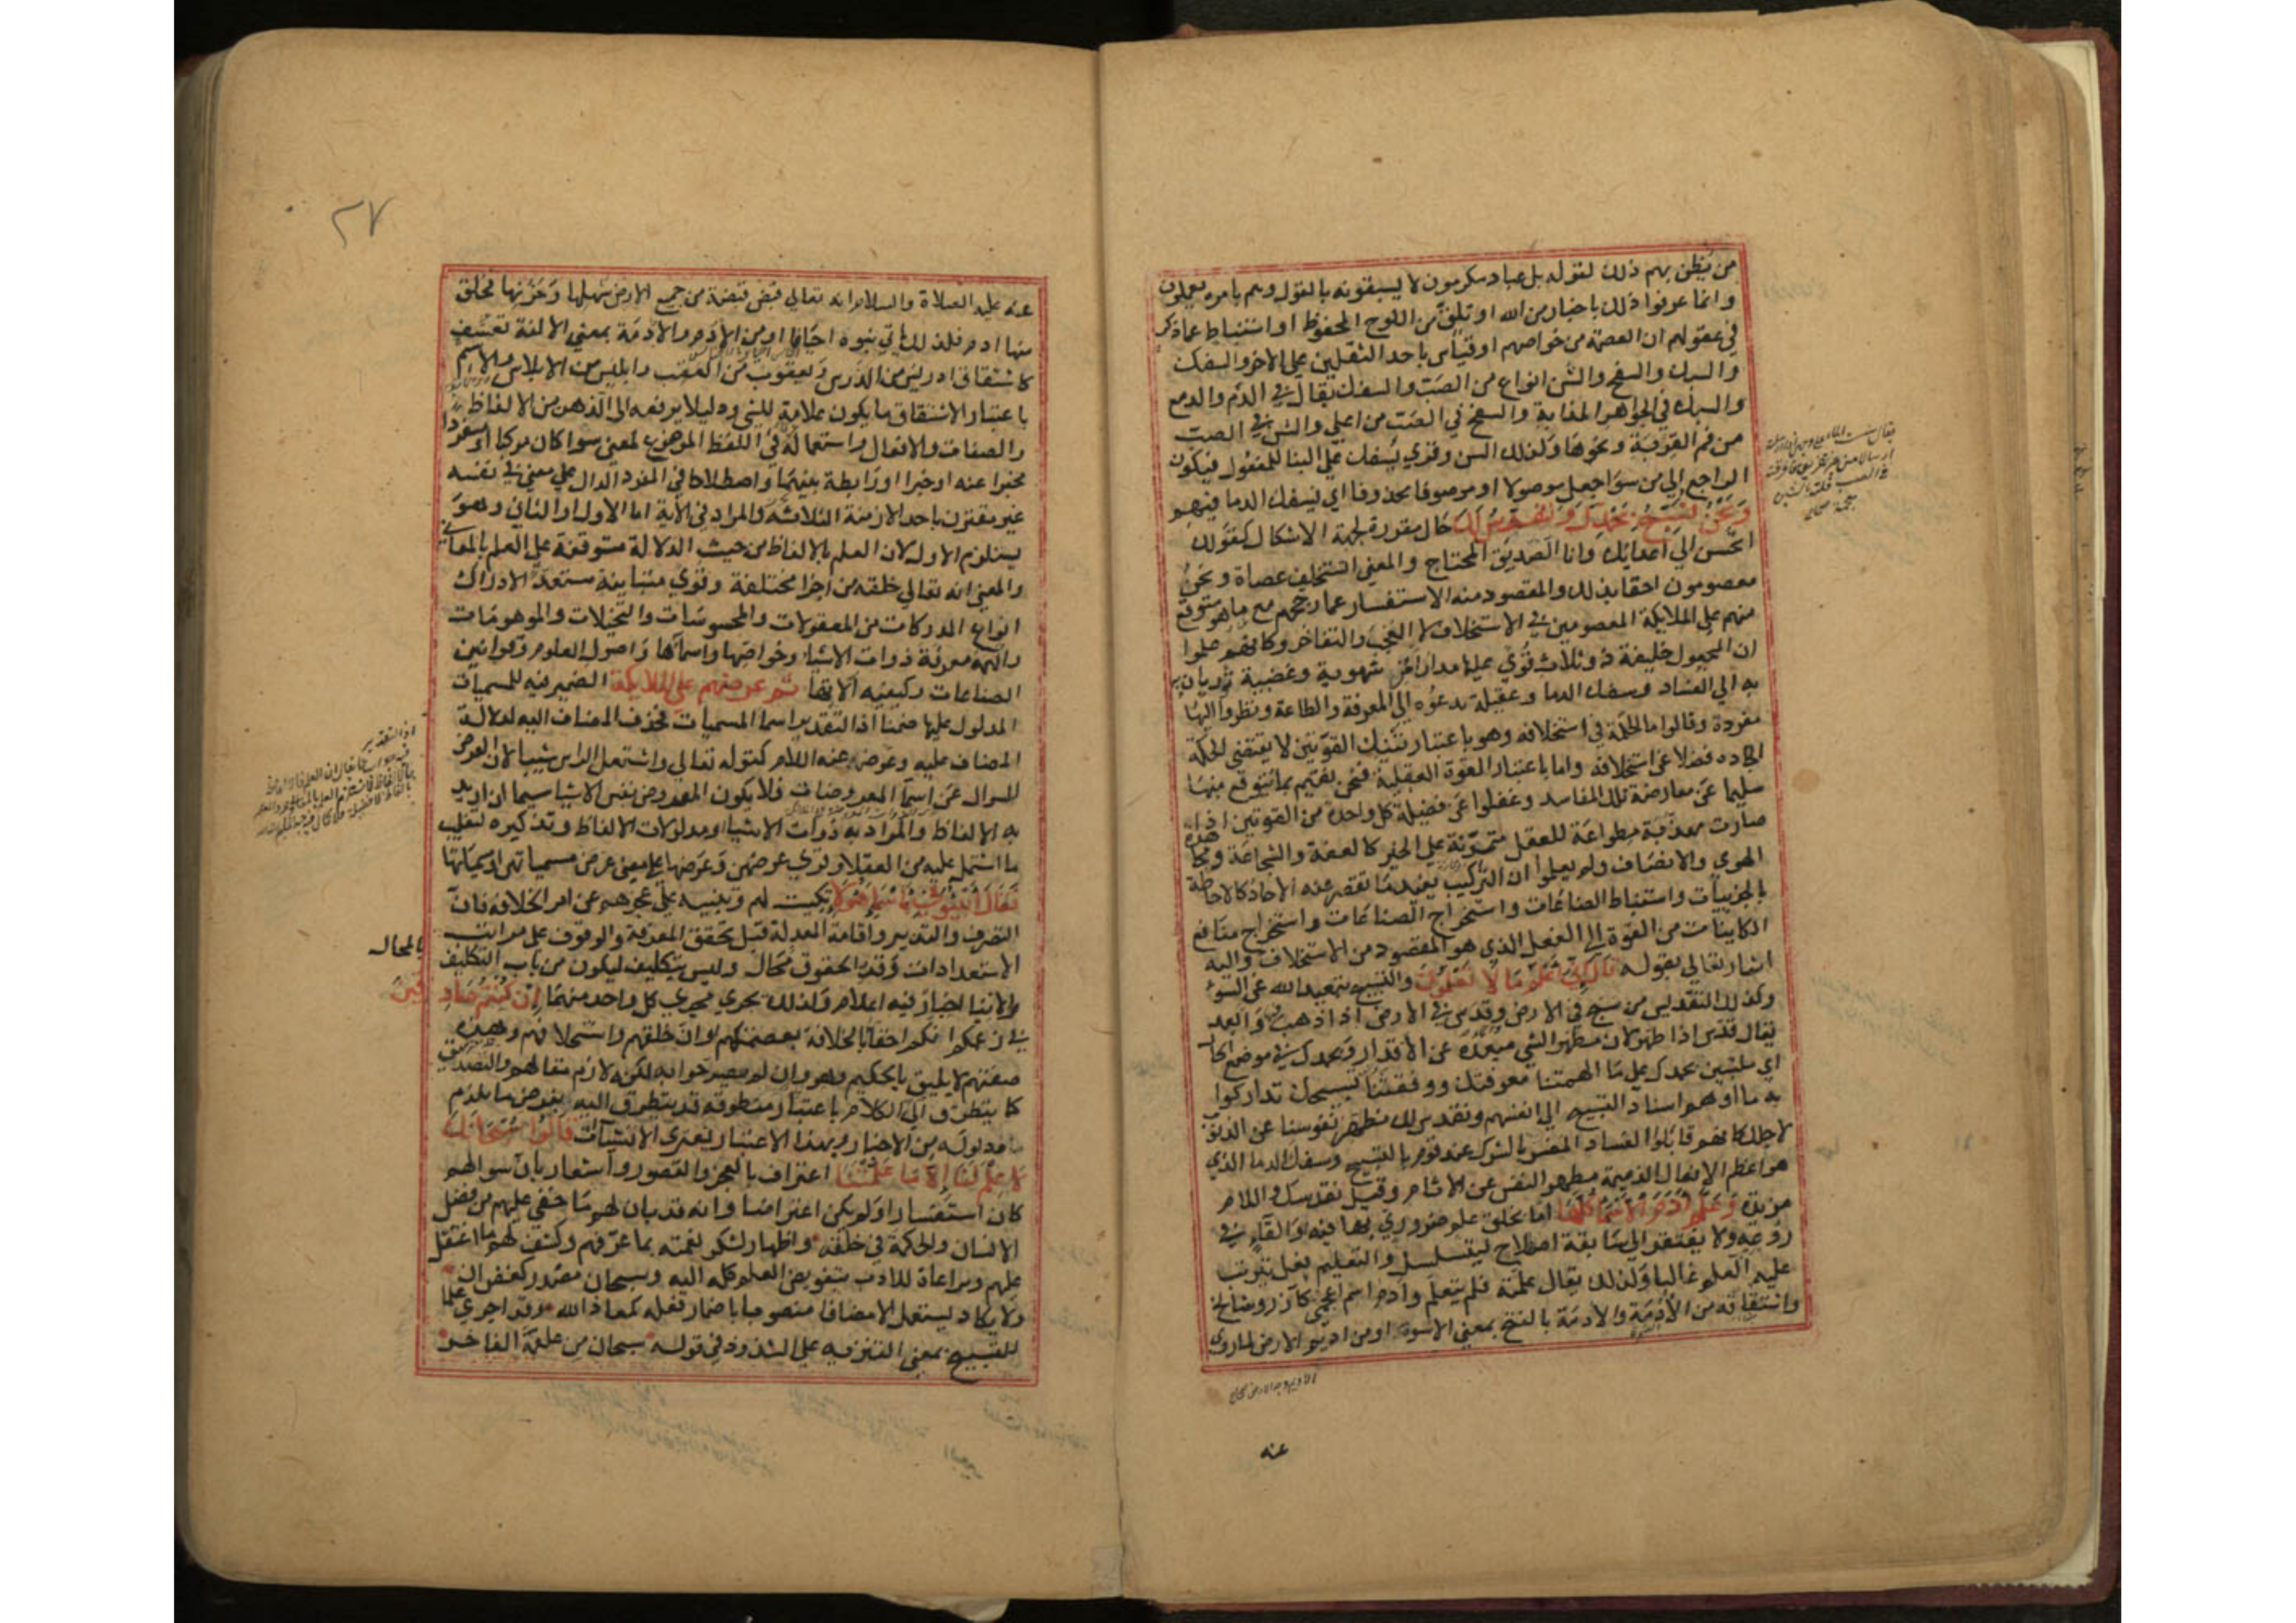 من يظن بهم ذلك لقوله بل عباد مكرمون لا يسبقونه بالقول وهم بامره يعملون
وانما عرفوا ذلك باخبار من الله او تلق من اللوح المحفوظ او استنباط عما ذكر
في عقولهم ان العصمة من خواصهم او قياس باحد الثقلين على الاخر والسفك
والسبك والسفح والشن انواع من الصب والسفك يقال في الدم والدمع
والسبك في الجواهر المذابة والسفح في الصب من اعلى والشن في الصب
من فم القربة ونحوها وكذلك السن وقرى يسفك على البنا للمفعول فيكون
الراجع الى من سوا جعل موصولا او موصوفا محذوفا اي يسفك الدما فيهم
ونحن نسبح بحمدك ونقدس لك حال مقررة لجهة الاشكال كقولك
اتحسن الى اعدايك وانا الصديق المحتاج والمعنى اتستخلف عصاة ونحن
معصومون احقا بذلك والمقصود منه الاستفسار عما رجحهم مع ما هو متوقع
منهم على الملايكة المعصومين في الاستخلاف لا العجب والتفاخر وكانهم علموا
ان المجعول خليفة ذو ثلاث قوى عليها مدار امره شهوية وغضبية توديان
به الى الفساد وسفك الدما وعقلية تدعوه الى المعرفة والطاعة ونظروا اليها
مفردة وقالوا ما الحكمة في استخلافه وهو باعتبار تينك القوتين لا يقتضي الحكمة
ايجاده فضلا عن استخلافه واما باعتبار القوة العقلية فنحن نقيم بما يتوقع منها
سليما عن معارضة تلك المفاسد وغفلوا عن فضيلة كل واحدة من القوتين اذا
صارت مهذبة مطواعة للعقل متمرنة على الخير كالعفة والشجاعة ومجاهدة
الهوى والانصاف ولم يعلموا ان التركيب يفيد ما تقصر عنه الاحاد كالاحاطة
بالجزييات واستنباط الصناعات واستخراج الصناعات واستخراج منافع
الكاينات من القوة الى الفعل الذي هو المقصود من الاستخلاف واليه
اشار تعالى بقوله قال اني اعلم ما لا تعلمون والتسبيح تبعيد الله عن السوء
وكذلك التقديس من سبح في الارض وقدس في الارض اذا ذهب فيها وابعد
يقال قدس اذا طهر لان مطهر الشي مبعده عن الاقذار وبحمدك في موضع الحال
اي ملتبسين بحمدك على ما الهمتنا معرفتك ووفقتنا لتسبيحك تداركوا
به ما اوهم اسناد التسبيح الى انفسهم ونقدس لك نطهر نفوسنا عن الذنوب
لاجلك كانهم قابلوا الفساد المفسر بالشرك عند قوم بالتسبيح وسفك الدما الذي
هو اعظم الافعال الذميمة بتطهير النفس عن الاثام وقيل نقدسك واللام
مزيدة وعلم ادم الاسما كلها اما بخلق علم ضروري بها فيه او القاء في
روعه ولا يفتقر الى سابقة اصطلاح ليتسلسل والتعليم فعل يترتب
عليه العلم غالبا ولذلك يقال علمته فلم يتعلم وادم اسم اعجمي كازر وشالخ
واشتقاقه من الادمة والادمة بالفتح بمعنى الاسوة او من اديم الارض لما روى
عنه
عنه عليه الصلاة والسلام انه تعالى قبض قبضة من جميع الارض سهلها وحزنها فخلق
منها ادم فلذلك ياتي بنوه اخيافا او من الادم والادمة بمعنى الالفة تعسف
كاشتقاق ادريس من الدرس ويعقوب من العقب وابليس من الابلاس والاسم
باعتبار الاشتقاق ما يكون علامة للشي ودليلا يرفعه الى الذهن من الالفاظ
والصفات والافعال واستعماله في اللفظ الموضوع لمعنى سوا كان مركبا او مفردا
مخبرا عنه او خبرا او رابطة بينهما واصطلاحا في المفرد الدال على معنى في نفسه
غير مقترن باحد الازمنة الثلاثة والمراد في الاية اما الاول او الثاني وهو
يستلزم الاول لان العلم بالالفاظ من حيث الدلالة متوقفة على العلم بالمعاني
والمعنى انه تعالى خلقه من اجزا مختلفة وقوى متباينة مستعدا لادراك
انواع المدركات من المعقولات والمحسوسات والتخيلات والموهومات
والهمه معرفة ذوات الاشيا وخواصها واسماها واصول العلوم وقوانين
الصناعات وكيفيه الاتها ثم عرضهم على الملايكة الضمير فيه للمسميات
المدلول عليها ضمنا اذ التقدير اسما المسميات فحذف المضاف اليه لدلالة
المضاف عليه وعوض عنه اللام كقوله تعالى واشتعل الراس شيبا لان العرض
للسوال عن اسما المعروضات فلا يكون المعروض نفس الاشيا سيما ان اريد
به الالفاظ والمراد به ذوات الاشيا او مدلولات الالفاظ وتذكيره لتغليب
ما اشتمل عليه من العقلا وقرى عرضهن وعرضها على معنى عرض مسمياتهن او مسمياتها
فقال انبئوني باسما هولا تبكيت لهم وتنبيه على عجزهم عن امر الخلافة فان
التصرف والتدبير واقامة المعدلة قبل تحقق المعرفة والوقوف على مراتب
الاستعدادات وقدر الحقوق محال وليس بتكليف ليكون من باب التكليف
بالمحال
والانباا خبار فيه اعلام ولذلك يجري مجرى كل واحد منهما ان كنتم صادقين
في زعمكم انكم احقا بالخلافة لعصمتكم او ان خلقهم واستخلافهم وهذه
صفتهم لا يليق بالحكيم وهو وان لم يصرحوا به لكنه لازم مقالهم والتصديق
كما يتطرق الى الكلام باعتبار منطوقه قد يتطرق اليه بفرض ما يلزم
مدلوله من الاخبار وبهذا الاعتبار يعتري الانشيات قالوا سبحانك
لا علم لنا الا ما علمتنا اعتراف بالعجز والقصور واشعار بان سوالهم
كان استفسارا ولم يكن اعتراضا وانه قد بان لهم ما خفي عليهم من فضل
الانسان والحكمة في خلقه واظهار لشكر نعمته بما عرفهم وكشف لهم ما اعتقل
عليهم ومراعاة للادب بتفويض العلم كله اليه وسبحان مصدر كغفران
ولا يكاد يستعمل الا مضافا منصوبا باضمار فعله كمعاذ الله وقد اجري علما
للتسبيح بمعنى التنزيه على الشذوذ في قوله سبحان من علقمة الفاخر
٢٧